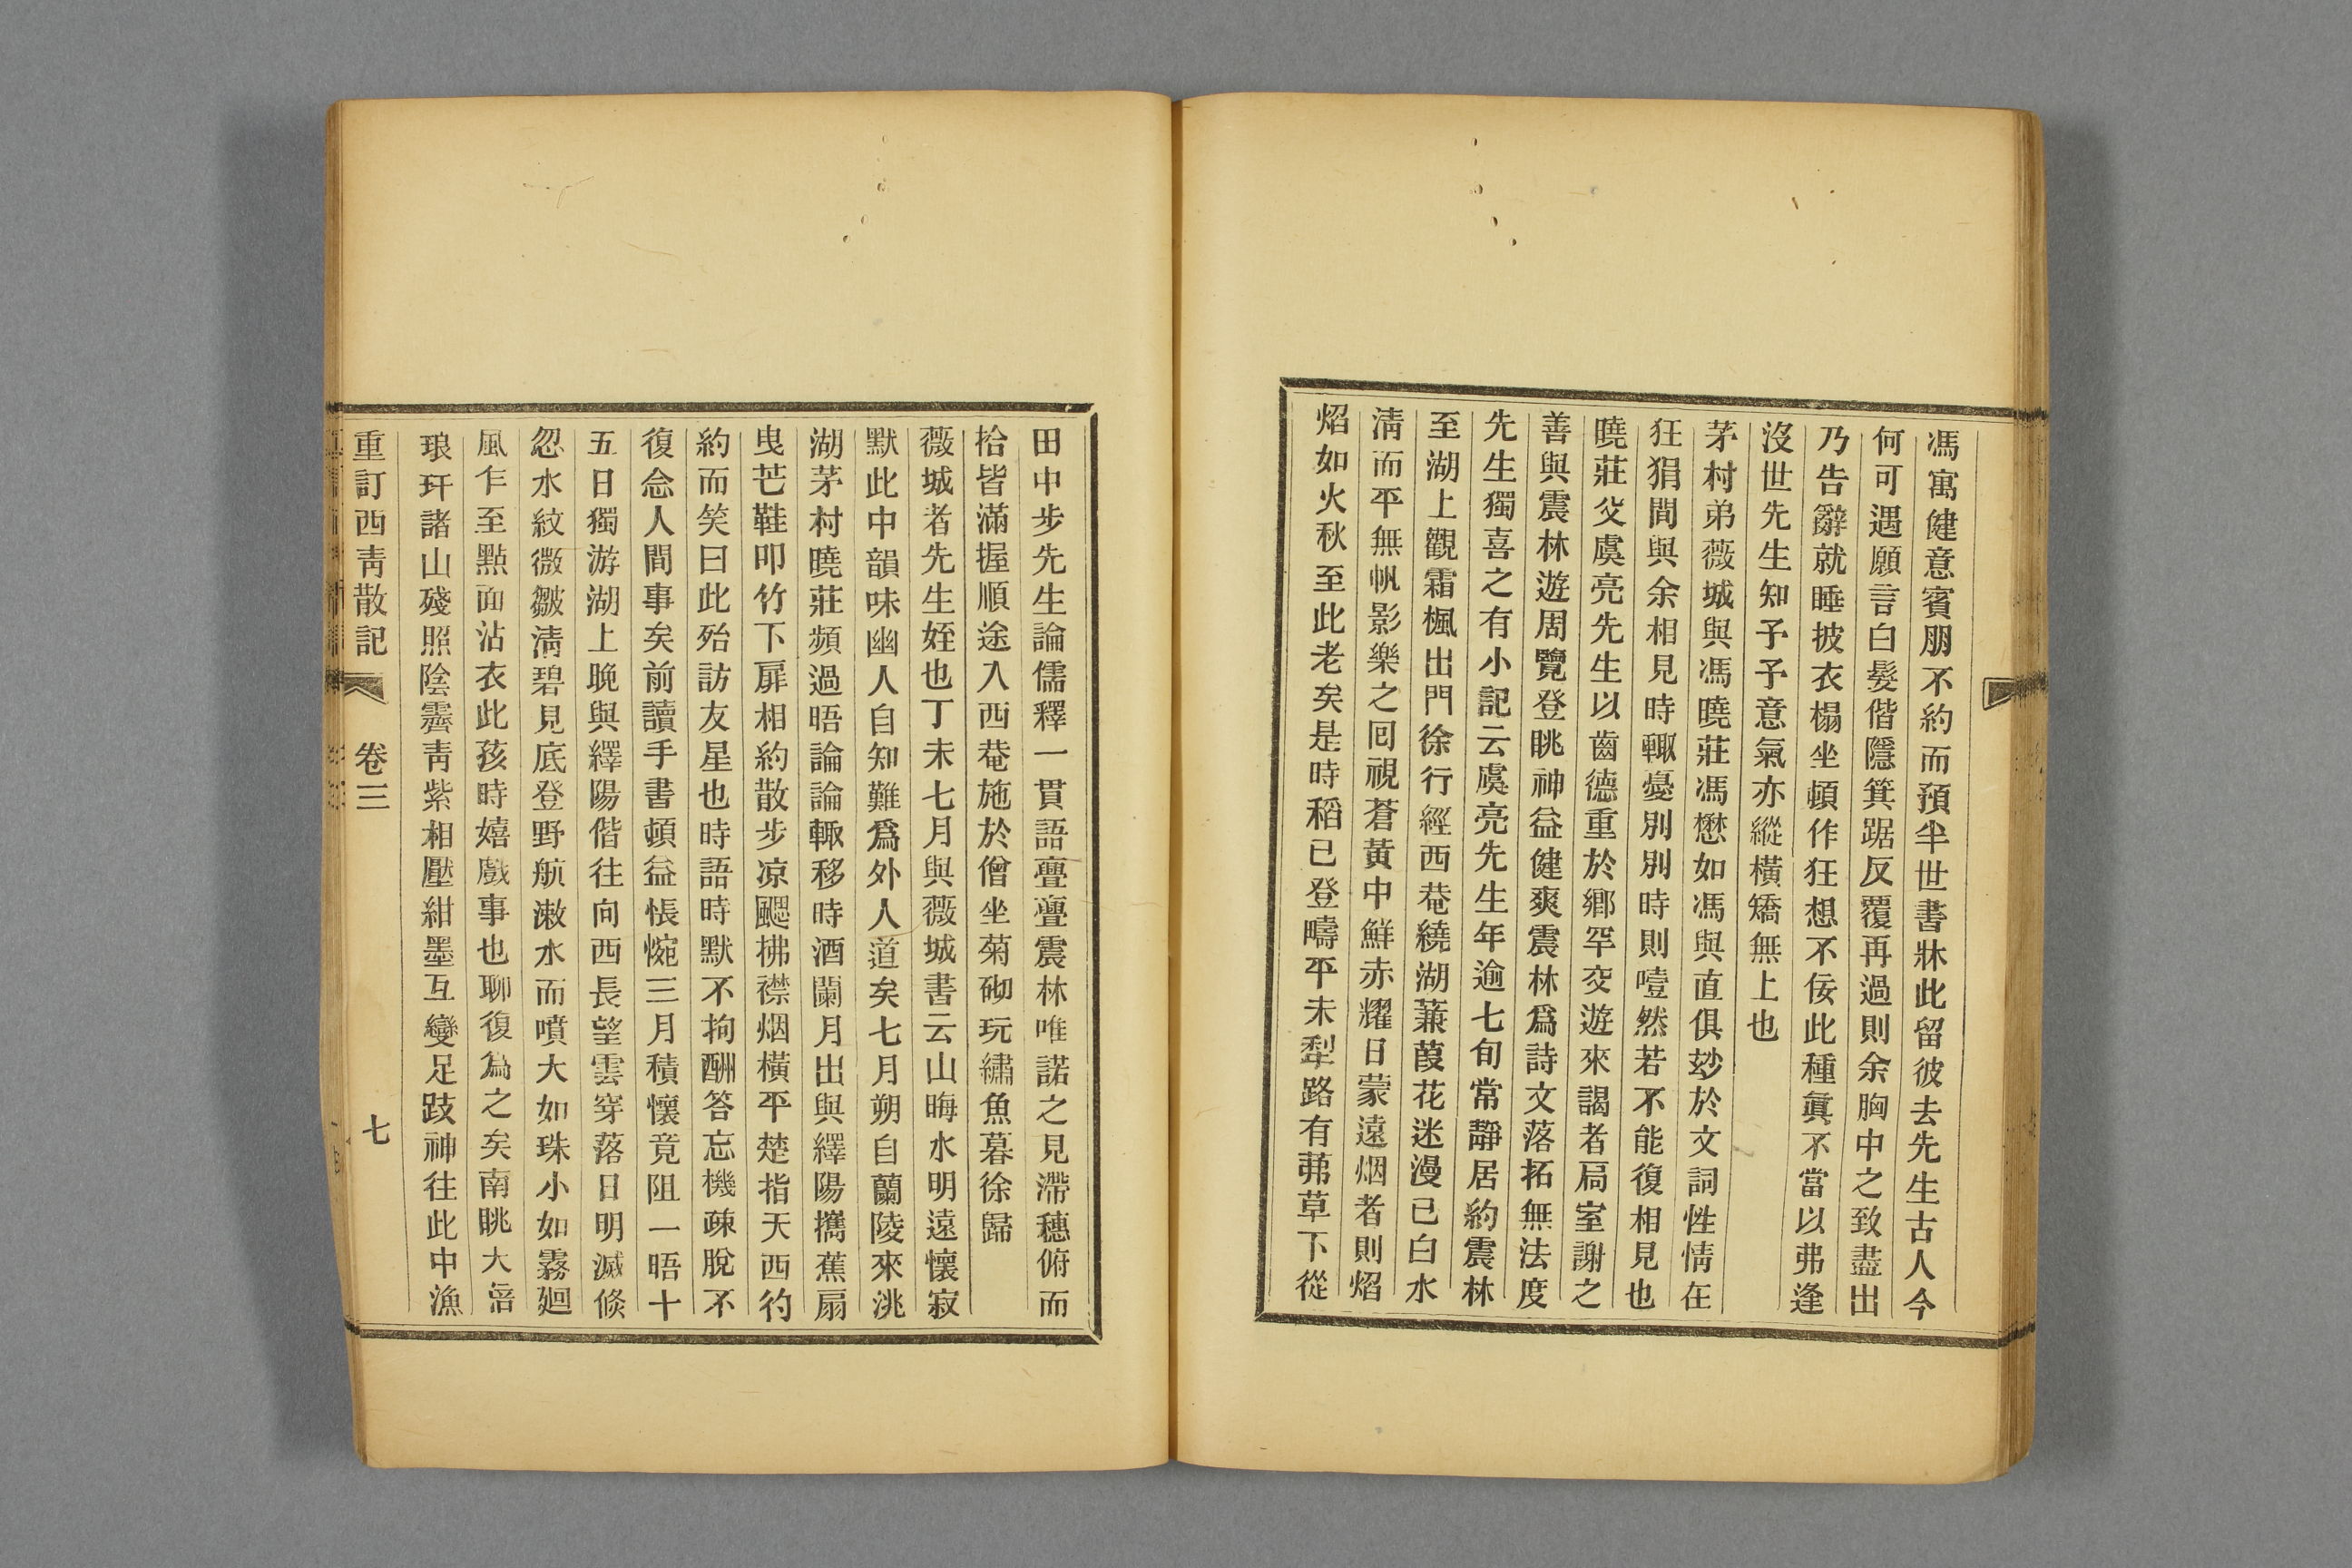 馮寓健意賓朋不約而預半世書牀此留彼去先生古人今
何可遇願言白髮偕隱箕踞反覆再過則余胸中之致盡出
乃告辭就睡披衣榻坐頓作狂想不佞此種眞不當以弗逢
沒世先生知予予意氣亦縱橫矯無上也
茅村弟薇城與馮曉莊馮懋如馮與直俱玅於文詞性情在
狂狷間與余相見時輒憂別別時則噎然若不能復相見也
曉莊父虞亮先生以齒德重於鄉罕交遊來謁者扃室謝之
善與震林遊周覽登眺神益健爽震林爲詩文落拓無法度
先生獨喜之有小記云虞亮先生年逾七旬常靜居約震林
至湖上觀霜楓出門徐行經西菴繞湖蒹葭花迷漫已白水
淸而平無帆影樂之囘視蒼黃中鮮赤耀日蒙遠烟者則熖
熖如火秋至此老矣是時稻已登疇平未犁路有茀草下從
田中步先生論儒釋一貫語亹亹震林唯諾之見滯穗俯而
拾皆滿握順途入西菴施於僧坐菊砌玩繡魚暮徐歸
薇城者先生姪也丁未七月與薇城書云山晦水明遠懷寂
默此中韻味幽人自知難爲外人道矣七月朔自蘭陵來洮
湖茅村曉莊頻過晤論論輒移時酒闌月出與繹陽攜蕉扇
曳芒鞋叩竹下扉相約散步凉颸拂襟烟橫平楚指天西彴
約而笑曰此殆訪友星也時語時默不拘酬答忘機疎脫不
復念人間事矣前讀手書頓益悵惋三月積懷竟阻一晤十
五日獨游湖上晚與繹陽偕往向西長望雲穿落日明滅倐
忽水紋微皺淸碧見底登野航漱水而噴大如珠小如霧廻
風乍至點面沾衣此孩時嬉戲事也聊復爲之矣南眺大涪
琅玕諸山殘照陰霽靑紫相壓紺墨互變足跂神往此中漁
重訂西靑散記 卷三 七